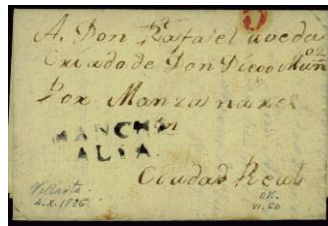 A. Don Rafael Uvedas
Criado de Don Diego Muñoz
Por Manzanares
en
MANCHA
ALTA.
Ciudad Real
Villarta
4.X.1826